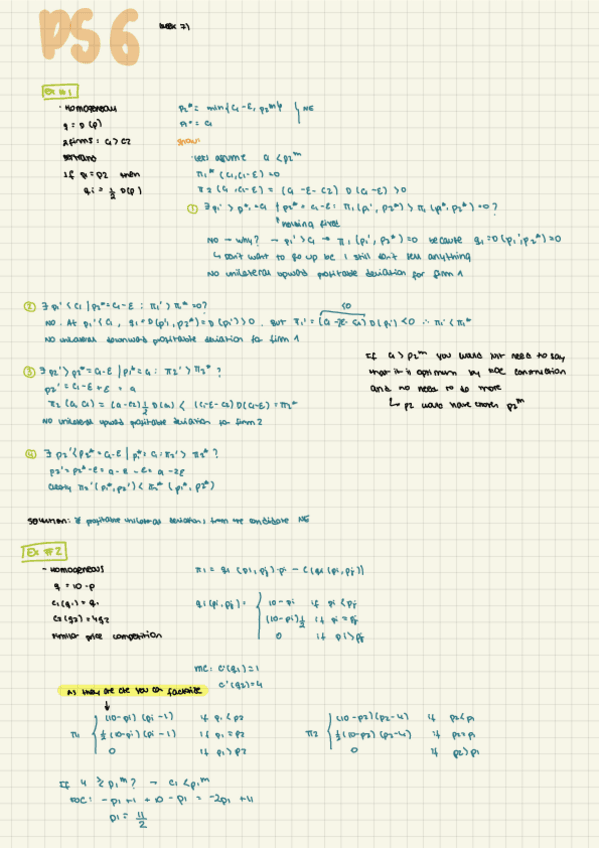 PS 6
week 7)
Ex #1
· Homogeneous
q = D(p)
2 firms: C1 > C2
Bertrand
If p1 = p2 then
qi = 1/2 D(p)
p2* = min{C1-ε, p2^m} } NE
p1* = C1
Show:
· Let's assume C1 < p2^m
π1* (C1, C1-ε) = 0
π2 (C1, C1-ε) = (C1-ε-C2) D(C1-ε) > 0
① ∃ p1' > p1* = C1 | p2* = C1-ε : π1(p1', p2*) > π1(p1*, p2*) = 0 ?
NO → why? → p1' > C1 → π1(p1', p2*) = 0 because q1 = D(p1', p2*) = 0
↳ don't want to go up bc I still don't sell anything
No unilateral upward profitable deviation for firm 1
② ∃ p1' < C1 | p2* = C1-ε : π1' > π1* = 0?
<0
NO. At p1' < C1, q1 = D(p1', p2*) = D(p1') > 0. But π1' = (C1-ε-C1) D(p1') < 0 ∴ π1' < π1*
No unilateral downward profitable deviation for firm 1
③ ∃ p2' > p2* = C1-ε | p1* = C1 : π2' > π2* ?
p2' = C1-ε+ε = C1
π2 (C1, C1) = (C1-C2) 1/2 D(C1) < (C1-ε-C2) D(C1-ε) = π2*
No unilateral upward profitable deviation for firm 2
If C1 > p2^m you would just need to say
that it is optimum by the construction
and no need to do more
↳ p2 would have chosen p2^m
④ ∃ p2' < p2* = C1-ε | p1* = C1 : π2' > π2* ?
p2' = p2*-ε = C1-ε-ε = C1-2ε
Clearly π2' (p1*, p2') < π2* (p1*, p2*)
Solution: ∄ profitable unilateral deviations from the candidate NE
Ex #2
- Homogeneous
q = 10-p
C1(q1) = q1
C2(q2) = 4q2
similar price competition
πi = qi (pi, pj) · pi - C(qi (pi, pj))
qi (pi, pj) = { 10-pi if pi < pj
(10-pi) 1/2 if pi = pj
0 if pi > pj
MC: C'(q1) = 1
C'(q2) = 4
As they are cte you can factorize
↓
π1 { (10-p1) (p1-1) if p1 < p2
1/2 (10-p1) (p1-1) if p1 = p2
0 if p1 > p2
π2 { (10-p2) (p2-4) if p2 < p1
1/2 (10-p2) (p2-4) if p2 = p1
0 if p2 > p1
If 4 ≥ p1^m? → C1 < p1^m
FOC: -p1 + 1 + 10 - p1 = -2p1 + 11
p1 = 11/2